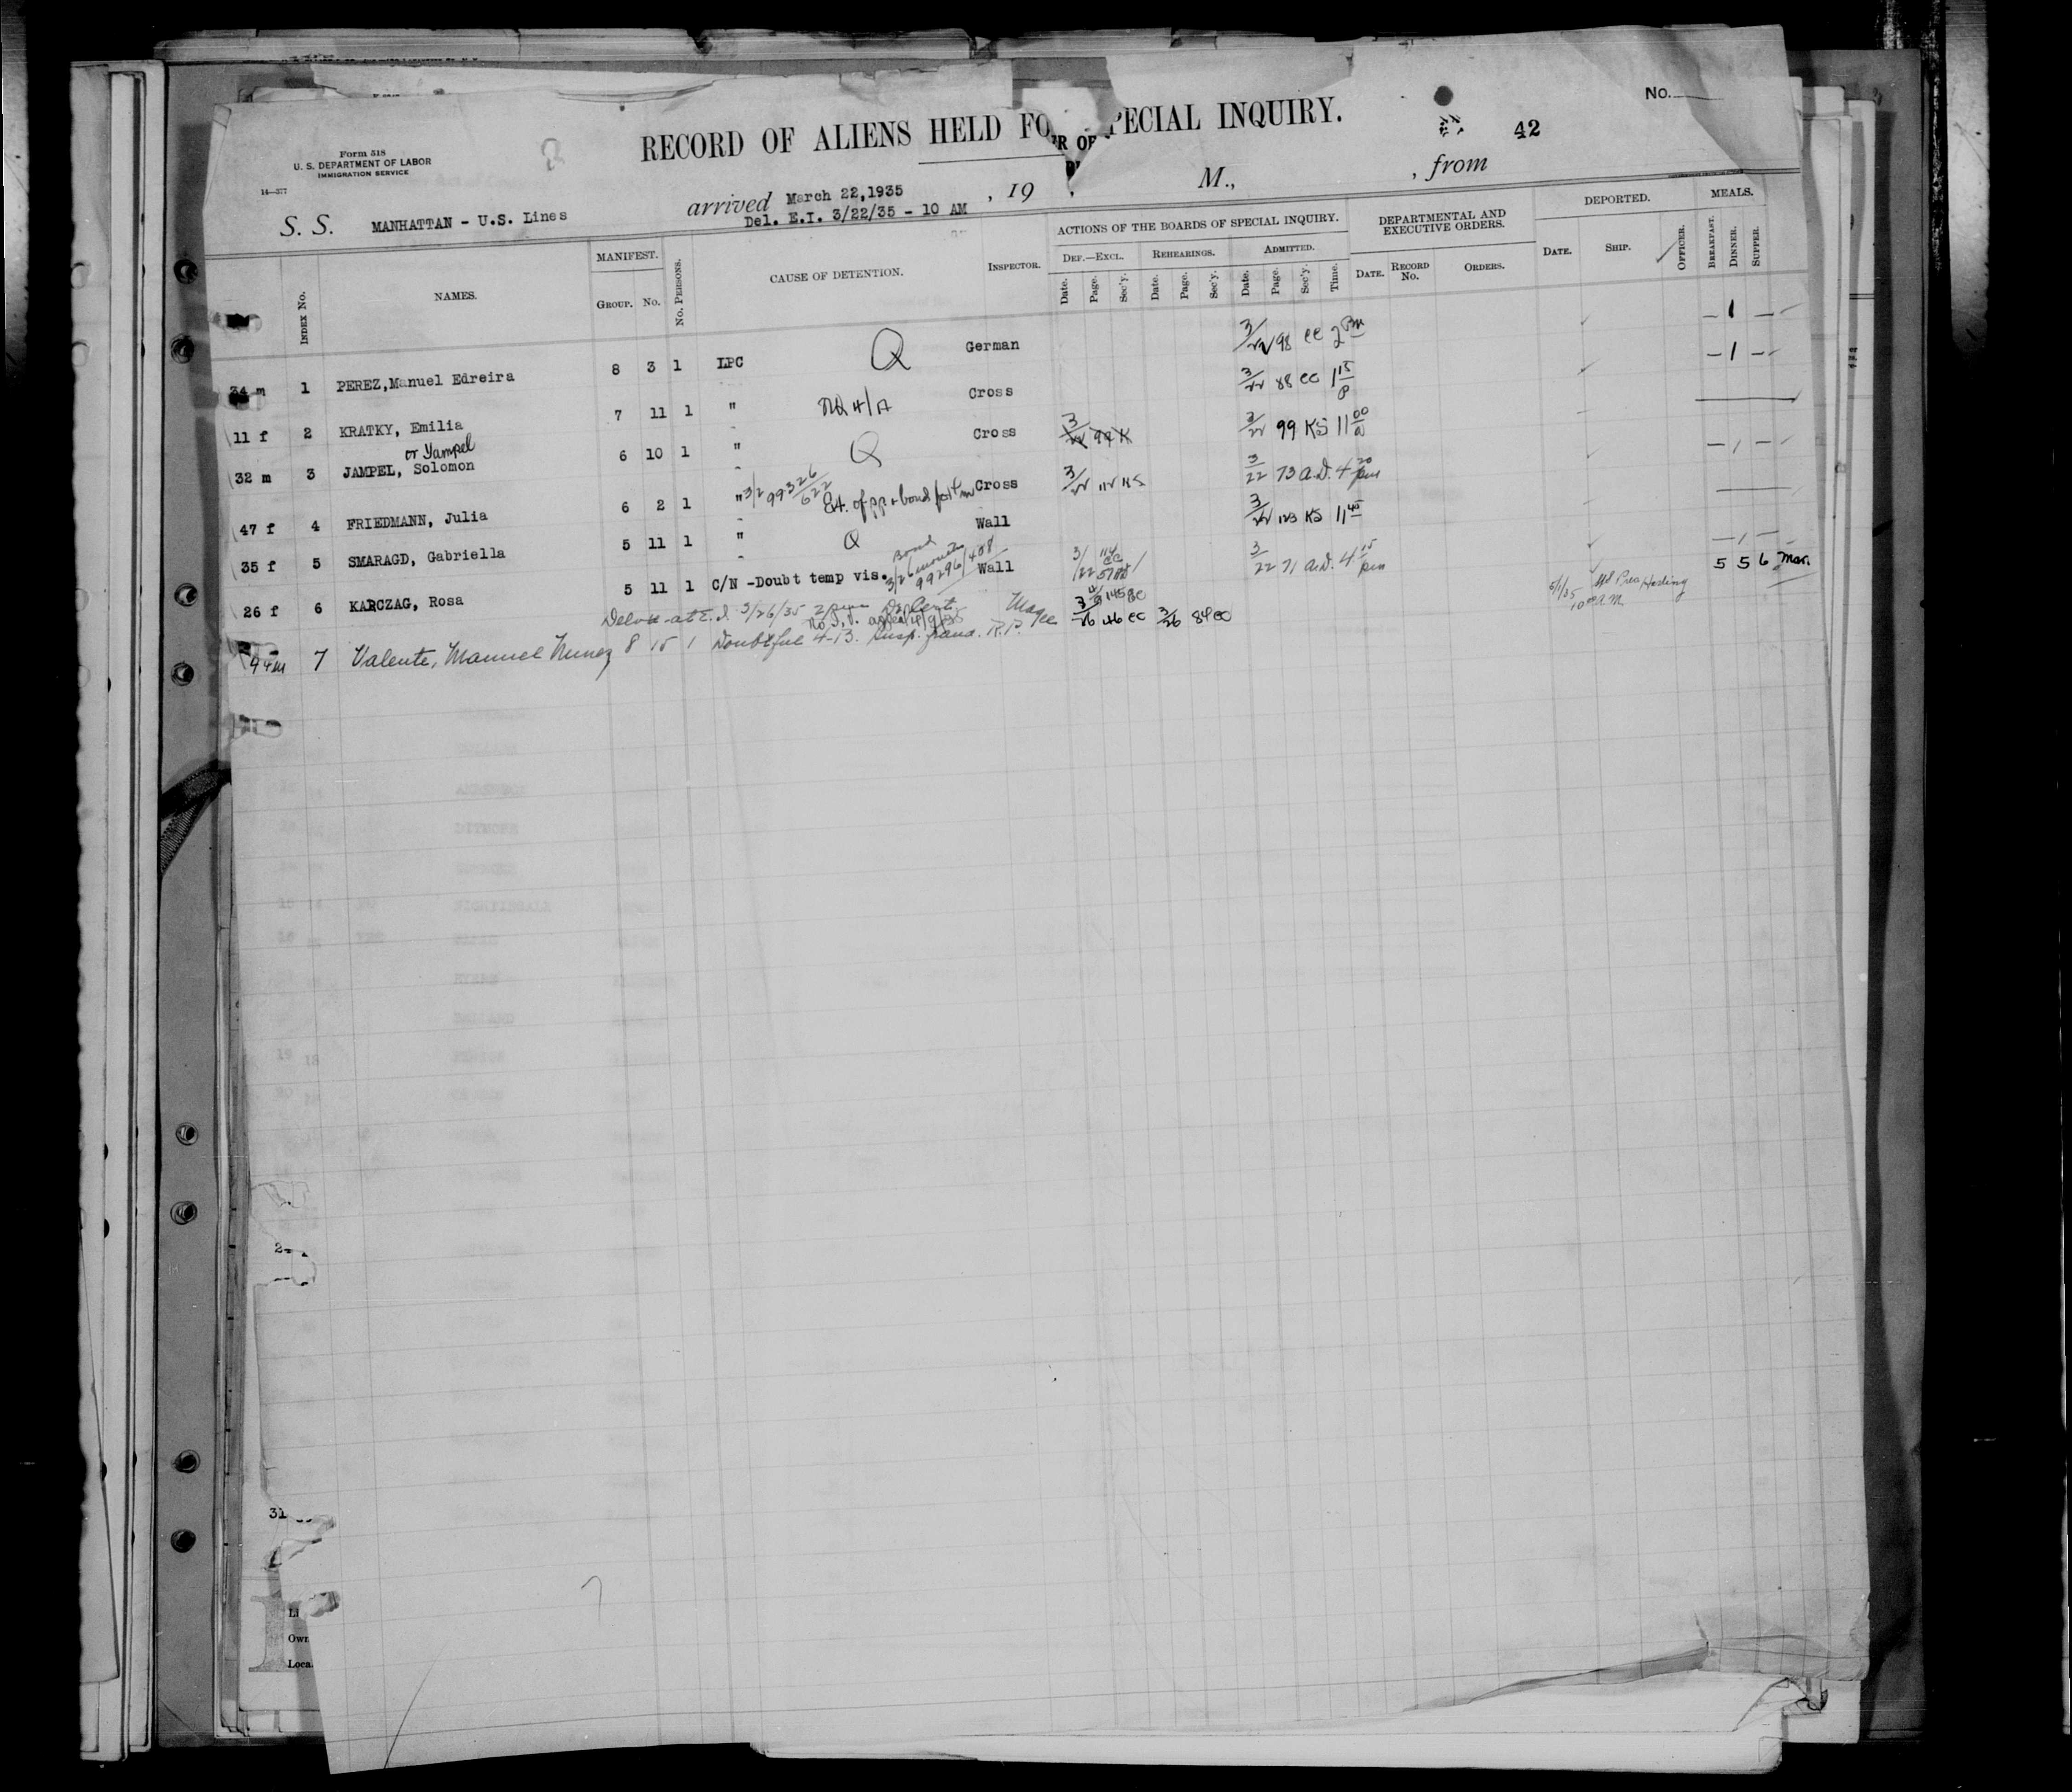 No.
RECORD OF ALIENS HELD FO PECIAL INQUIRY.
42
Form 518
U. S. DEPARTMENT OF LABOR
IMMIGRATION SERVICE
14—377
S. S. MANHATTAN - U.S. Lines arrived March 22,1935 , 19 , M., , from
Del. E.I. 3/22/35 - 10 AM
INDEX No. NAMES. MANIFEST. No. PERSONS. CAUSE OF DETENTION. INSPECTOR. ACTIONS OF THE BOARDS OF SPECIAL INQUIRY. DEPARTMENTAL AND EXECUTIVE ORDERS. DEPORTED. MEALS.
GROUP. No. DEF.—EXCL. REHEARINGS. ADMITTED. DATE. RECORD No. ORDERS. DATE. SHIP. OFFICER. BREAKFAST. DINNER. SUPPER.
Date. Page. Sec'y. Date. Page. Sec'y. Date. Page. Sec'y. Time.
34 m 1 PEREZ,Manuel Edreira 8 3 1 LPC Q German 3/22 98 CC 2 Pm — 1 —
11 f 2 KRATKY, Emilia 7 11 1 " Cross 3/22 88 CC 1 15 P — 1 —
or Yampel
32 m 3 JAMPEL, Solomon 6 10 1 " Q Cross 3/22 99 K 3/22 99 KS 11 00 a
47 f 4 FRIEDMANN, Julia 6 2 1 " 99326/622 Cross 3/22 112 KS 3/22 73 A.D. 4 20 pm — 1 —
35 f 5 SMARAGD, Gabriella 5 11 1 " Q Wall 3/22 123 KS 11 45
26 f 6 KARCZAG, Rosa 5 11 1 C/N -Doubt temp vis. Bond 3/26 months 99296/408 Wall 3/22 3/22 71 A.D. 4 15 pm — 1 —
Delvd at E.I. 3/26/35 2 pm
44 m 7 Valente, Manuel Nunez 8 15 1 Doubtful 4-13. Susp. R.P. Magee 3/26 46 CC 3/26 84 CC 5/1/35 10 00 A.M. Pres Harding 5 5 6 Mar.
31
Li
Own
Loca